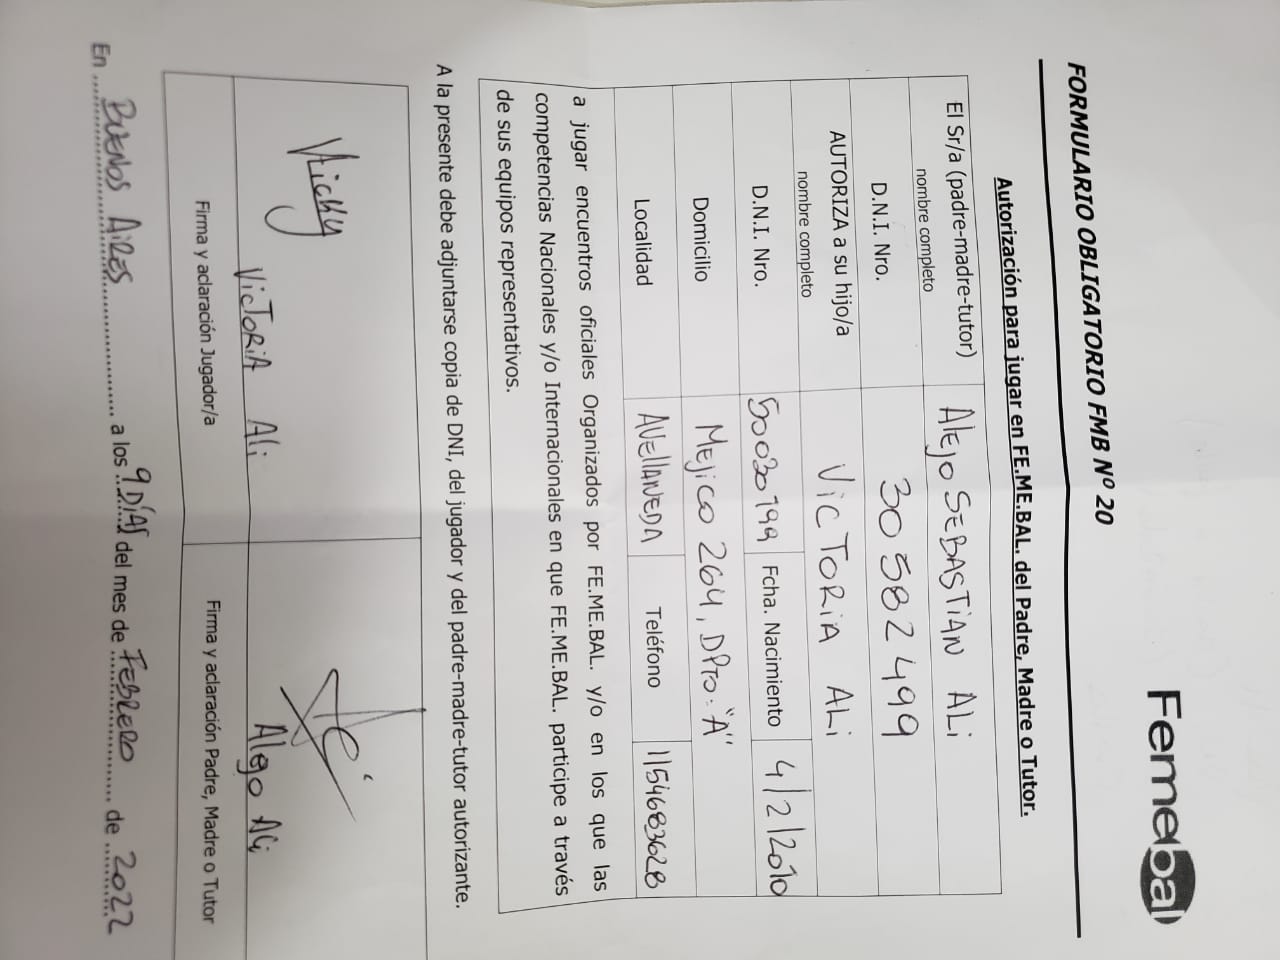 Femebal
FORMULARIO OBLIGATORIO FMB Nº 20
Autorización para jugar en FE.ME.BAL. del Padre, Madre o Tutor.
El Sr/a (padre-madre-tutor)
nombre completo
Alejo SEBASTIAN ALi
D.N.I. Nro.
30 582 499
AUTORIZA a su hijo/a
nombre completo
VICTORIA ALi
D.N.I. Nro.
50030799
Fcha. Nacimiento
4/2/2010
Domicilio
MEJICO 264, DPTO: "A"
Localidad
AVELLANEDA
Teléfono
1154683628
a jugar encuentros oficiales Organizados por FE.ME.BAL. y/o en los que las
competencias Nacionales y/o Internacionales en que FE.ME.BAL., participe a través
de sus equipos representativos.
A la presente debe adjuntarse copia de DNI, del jugador y del padre-madre-tutor autorizante.
Vicky
VICTORIA ALi
Alejo ALi
Firma y aclaración Jugador/a
Firma y aclaración Padre, Madre o Tutor
En BUENOS AIRES a los 9 DÍAS del mes de FEBRERO de 2022